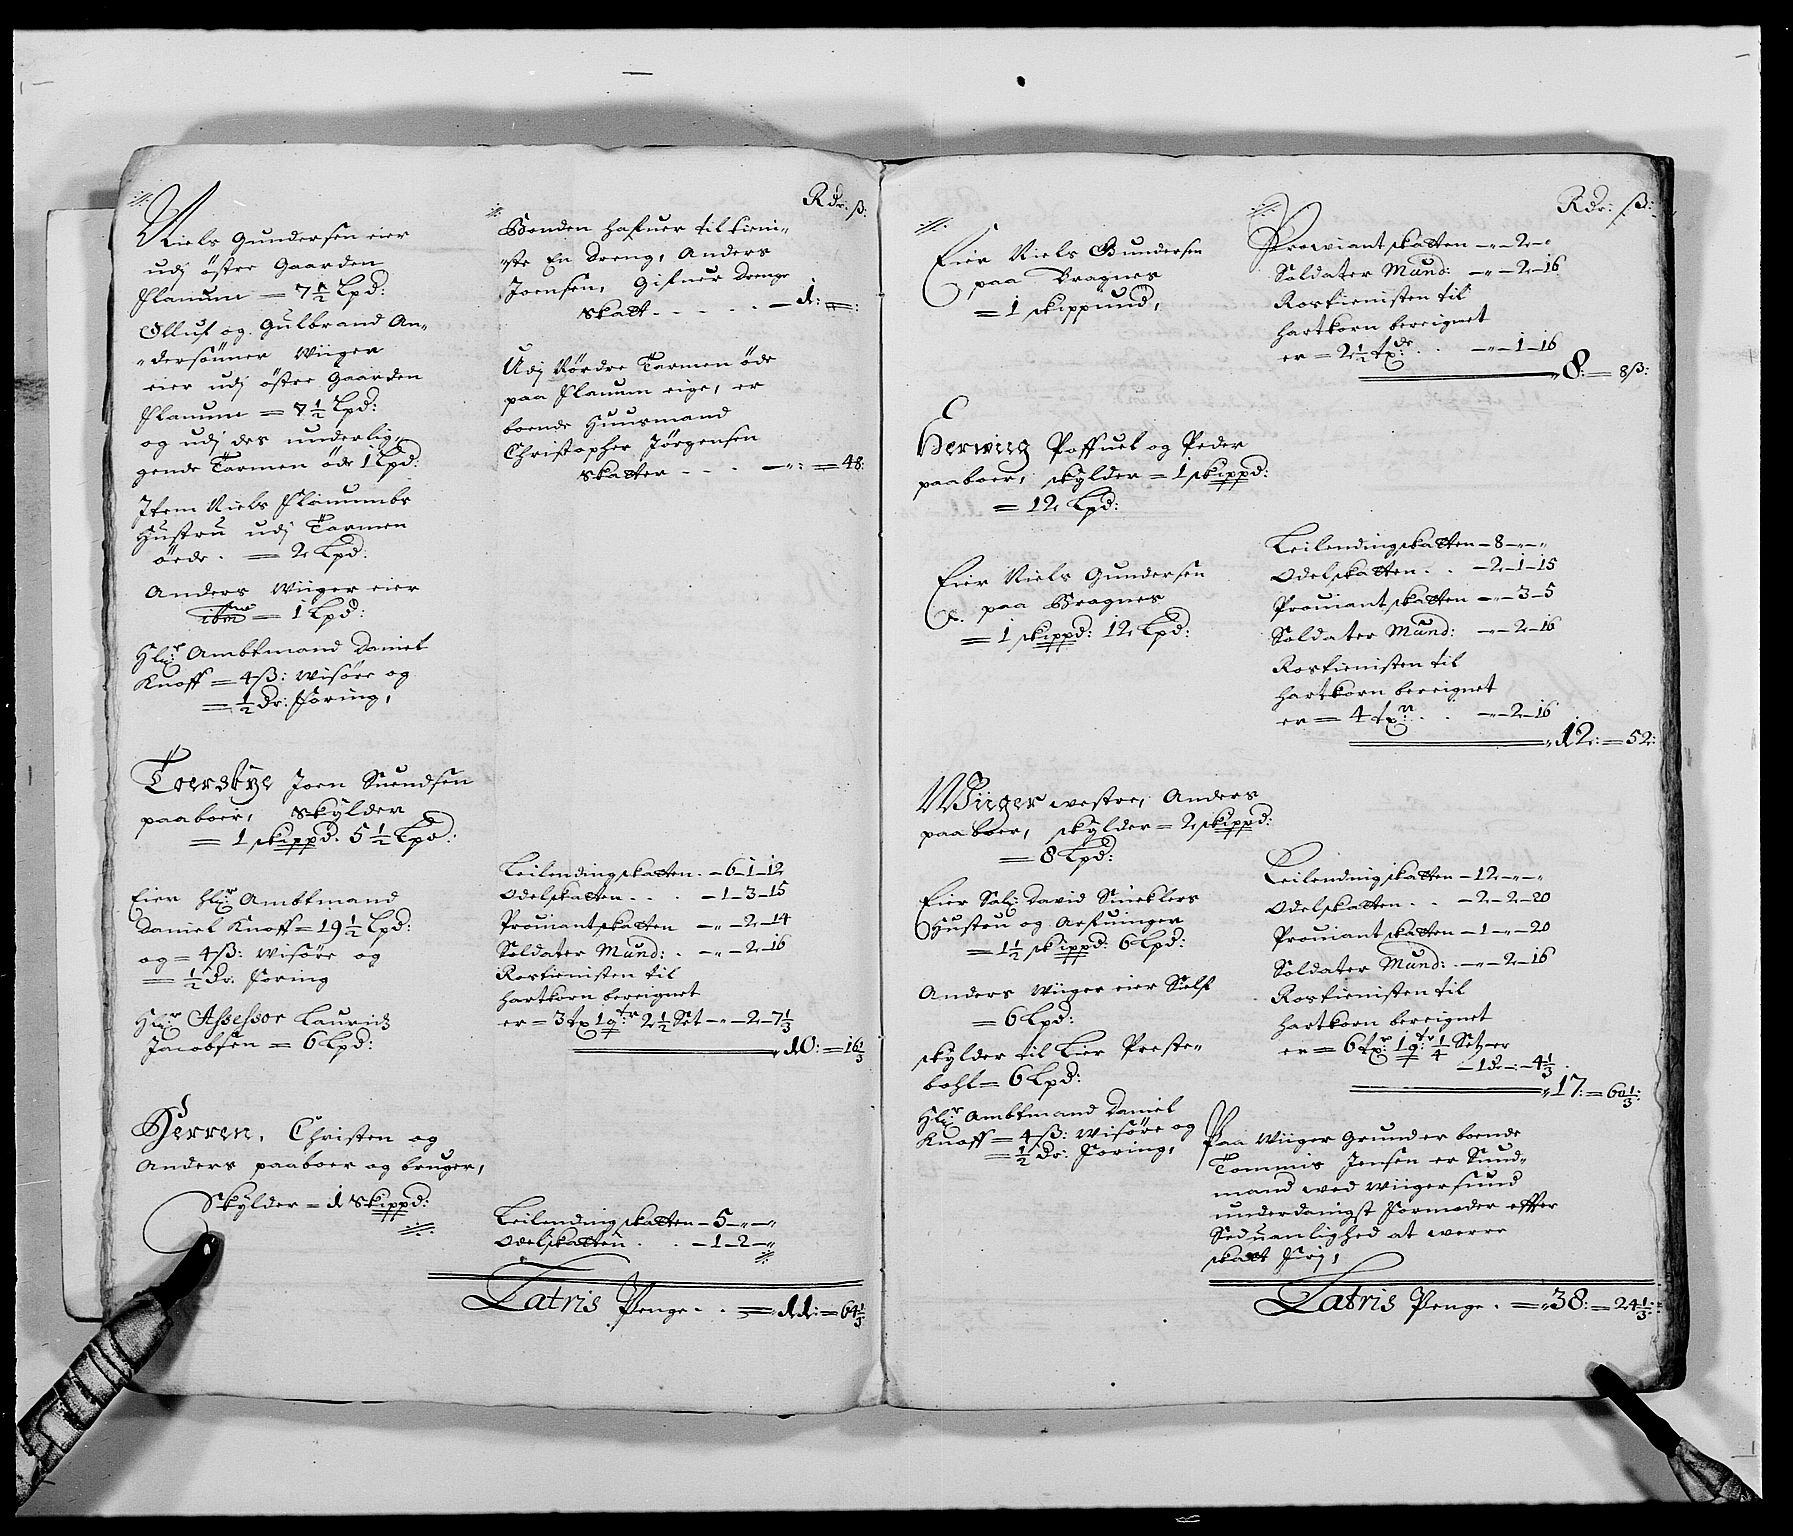 Rdr: ß:
Niels Gundersen eier
udj östre Gaarden
Flanum = 7½ Lpd:
Olluf og Gulbrand An=
=dersönner Wiiger
eier udj östre Gaarden
Flanum = 7½ Lpd:
og udj des underlig=
gende Tarmen öde 1 Lpd:
Item Niels Flanumbs
Hustru udj Tarmen
öede. = 2 Lpd:
Anders Wiiger eier
= 1 Lpd:
Hlr: Ambtmand Daniel
Knoff = 4 ß: Wisöre og
= ½ dr: Foring,
Toerskye Joen Suendsen
paaboer, Skylder
= 1 skippd. 5½ Lpd:
Eier Hlr: Ambtmand
Daniel Knoff = 19½ Lpd:
og = 4 ß: Wisöre og
= ½ dr: Foring
Hlr: Assessor Lauridz
Jacobsen = 6 Lpd:
Herren, Christen og
Anders paaboer og bruger,
Skylder = 1 Skippd:
Bonden hafuer til tieni=
=ste En Dreng, Anders
Joensen, Gifuer Drenge
Skatt - - - - - 1: =:
Udj Nördre Tarmen öde
paa Flanum eige, er
boende Huusmand
Christopher Jörgensen
Skatter - - - - „: = 48:
Leilendingskatten. - 6 - 1 - 12
Odelskatten . . . - 1 - 3 - 15
Prouiantskatten - „ - 2 - 14
Soldater Mund: . - „ - 2 - 16
Rostienisten til
hartkorn bereignet
er = 3 tx 1 qtr: 2½ Set - „ - 2 - 7⅓
10: = 16⅓
Leilendingskatten - 5 - „ - „
Odelskatten . . - 1 - 2 - „
Latris Penge . . = 11: = 64⅓
Rdr: ß:
Eier Niels Gundersen
paa Bragnes
= 1 skippund,
Herwiig Poffuel og Peder
paaboer, skylder = 1 skippd:
= 12 Lpd:
Eier Niels Gundersen
paa Bragnes
= 1 skippd: 12 Lpd:
Wiiger westre, Anders
paaboer, skylder = 2 skippd:
= 8 Lpd:
Eier Sal: David Sineklers
Hustru og Arfuinger
= 1½ skippd: 6 Lpd:
Anders Wiiger eier Sielf
= 6 Lpd:
skylder til Lier Preste=
bohl = 6 Lpd:
Hlr: Ambtmand Daniel
Knoff = 4 ß: Wisöre og
= ½ dr: Foring,
Prowiantskatten - „ - 2 - „
Soldater Mund: - „ - 2 - 16
Rostienisten til
hartkorn bereignet
er = 2½ tx: . . - „ - 1 - 16
8: = 8 ß:
Leilendingskatten - 8 - „ - „
Odelskatten . . - 2 - 1 - 15
Prouiantskatten - „ - 3 - 5
Soldater Mund: - „ - 2 - 16
Rostienisten til
hartkorn bereignet
er = 4 tx: . . - „ - 2 - 16
12: = 52:
Leilendingskatten - 12 - „ - „
Odelskatten . . - 2 - 2 - 20
Prouiantskatten - 1 - „ - 20
Soldater Mund: - „ - 2 - 16
Rostienisten til
hartkorn bereignet
er = 6 tx: 1 qtr: ¼ Setz er
- 4⅓
17: = 60⅓:
Paa Wiiger Grund er boende
Tommis Jensen er Sund=
mand wed Wiigersund
underdanigst Formoder effter
Seduanlighed at werre
skatt Frj,
Latris Penge . = 38: = 24⅓: